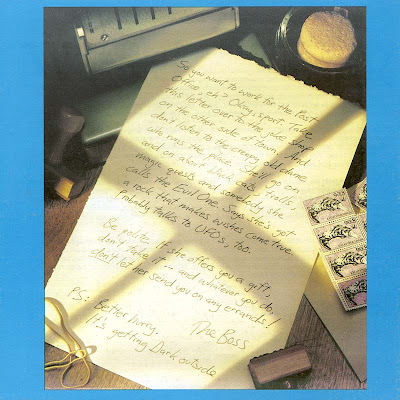 So you want to work for the Post
Office, eh? Okay, sport. Take
this letter over to the junk shop
on the other side of town. And
don't listen to the creepy old dame
who runs the place. She'll go on
and on about black cats, trolls,
magic quests and somebody she
calls the Evil One. Says she's got
a rock that makes wishes come true.
Probably talks to UFOs, too.
Be polite. If she offers you a gift,
don't take it... and whatever you do,
don't let her send you on any errands!
The Boss
PS: Better hurry.
It's getting Dark outside